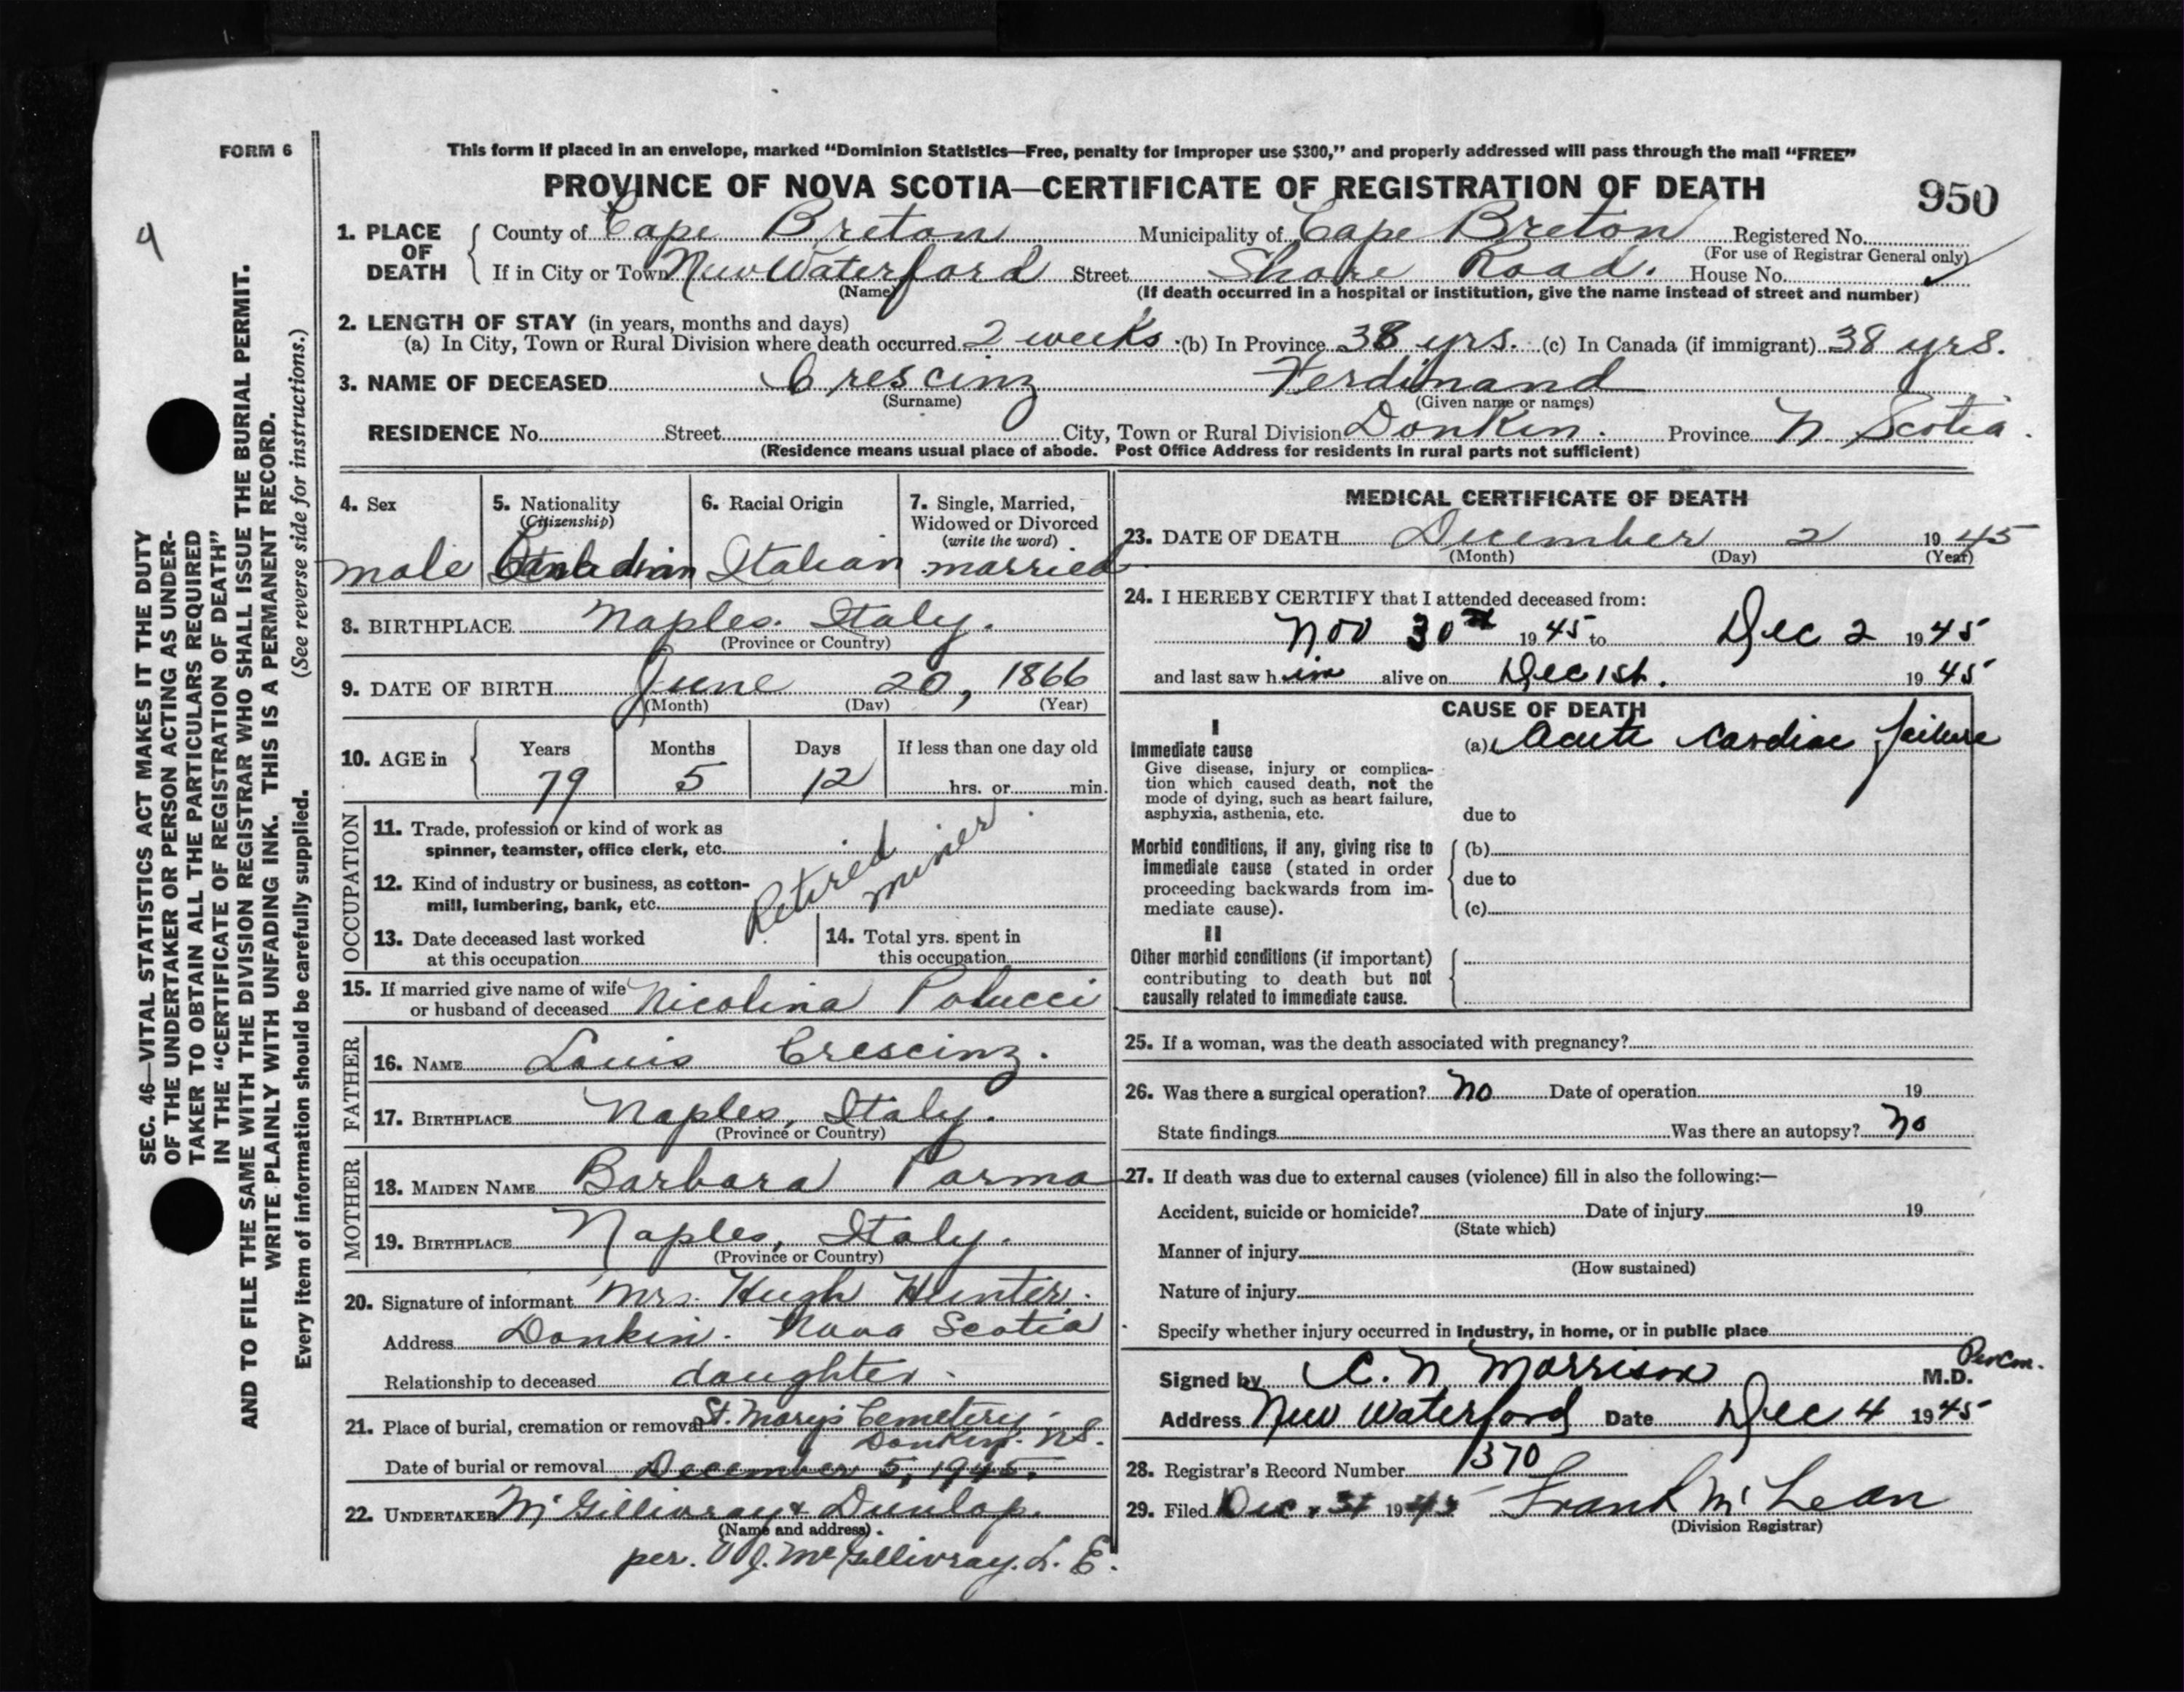 FORM 6
This form if placed in an envelope, marked "Dominion Statistics—Free, penalty for improper use $300," and properly addressed will pass through the mail "FREE"
PROVINCE OF NOVA SCOTIA—CERTIFICATE OF REGISTRATION OF DEATH
950
9
1. PLACE OF DEATH
County of Cape Breton Municipality of Cape Breton Registered No.
(For use of Registrar General only)
If in City or Town New Waterford Street Shore Road. House No.
(Name)
(If death occurred in a hospital or institution, give the name instead of street and number)
2. LENGTH OF STAY (in years, months and days)
(a) In City, Town or Rural Division where death occurred 2 weeks (b) In Province 38 yrs. (c) In Canada (if immigrant) 38 yrs.
3. NAME OF DECEASED Crescinz Ferdinand
(Surname) (Given name or names)
RESIDENCE No. Street City, Town or Rural Division Donkin. Province N. Scotia.
(Residence means usual place of abode. Post Office Address for residents in rural parts not sufficient)
4. Sex
male
5. Nationality
(Citizenship)
Canadian
6. Racial Origin
Italian
7. Single, Married,
Widowed or Divorced
(write the word)
married
8. BIRTHPLACE Naples. Italy.
(Province or Country)
9. DATE OF BIRTH June 20, 1866
(Month) (Day) (Year)
10. AGE in Years Months Days If less than one day old
79 5 12 hrs. or min.
OCCUPATION
11. Trade, profession or kind of work as
spinner, teamster, office clerk, etc.
Retired miner.
12. Kind of industry or business, as cotton-
mill, lumbering, bank, etc.
13. Date deceased last worked
at this occupation
14. Total yrs. spent in
this occupation
15. If married give name of wife
or husband of deceased Nicolina Polucci
FATHER
16. NAME Louis Crescinz.
17. BIRTHPLACE Naples, Italy.
(Province or Country)
MOTHER
18. MAIDEN NAME Barbara Parma
19. BIRTHPLACE Naples, Italy.
(Province or Country)
20. Signature of informant Mrs. Hugh Hunter.
Address Donkin. Nova Scotia
Relationship to deceased daughter.
21. Place of burial, cremation or removal St. Mary's Cemetery.
Donkin. N.S.
Date of burial or removal December 5, 1945.
22. UNDERTAKER McGillivray & Dunlop.
(Name and address)
per. J. McGillivray. L. E.
MEDICAL CERTIFICATE OF DEATH
23. DATE OF DEATH December 2 1945
(Month) (Day) (Year)
24. I HEREBY CERTIFY that I attended deceased from:
Nov 30th 1945 to Dec 2 1945
and last saw him alive on Dec 1st. 1945
CAUSE OF DEATH
I
Immediate cause
(a) Acute Cardiac failure
Give disease, injury or complica-
tion which caused death, not the
mode of dying, such as heart failure,
asphyxia, asthenia, etc.
due to
Morbid conditions, if any, giving rise to
immediate cause (stated in order
proceeding backwards from im-
mediate cause).
(b)
due to
(c)
II
Other morbid conditions (if important)
contributing to death but not
causally related to immediate cause.
25. If a woman, was the death associated with pregnancy?
26. Was there a surgical operation? No Date of operation 19
State findings Was there an autopsy? No
27. If death was due to external causes (violence) fill in also the following:—
Accident, suicide or homicide? Date of injury 19
(State which)
Manner of injury
(How sustained)
Nature of injury
Specify whether injury occurred in industry, in home, or in public place
Signed by C. N. Morrison M.D.
Address New Waterford Date Dec 4 1945
28. Registrar's Record Number 1370
29. Filed Dec. 31 1945 Frank McLean
(Division Registrar)
SEC. 46—VITAL STATISTICS ACT MAKES IT THE DUTY
OF THE UNDERTAKER OR PERSON ACTING AS UNDER-
TAKER TO OBTAIN ALL THE PARTICULARS REQUIRED
IN THE "CERTIFICATE OF REGISTRATION OF DEATH"
AND TO FILE THE SAME WITH THE DIVISION REGISTRAR WHO SHALL ISSUE THE BURIAL PERMIT.
WRITE PLAINLY WITH UNFADING INK. THIS IS A PERMANENT RECORD.
Every item of information should be carefully supplied. (See reverse side for instructions.)